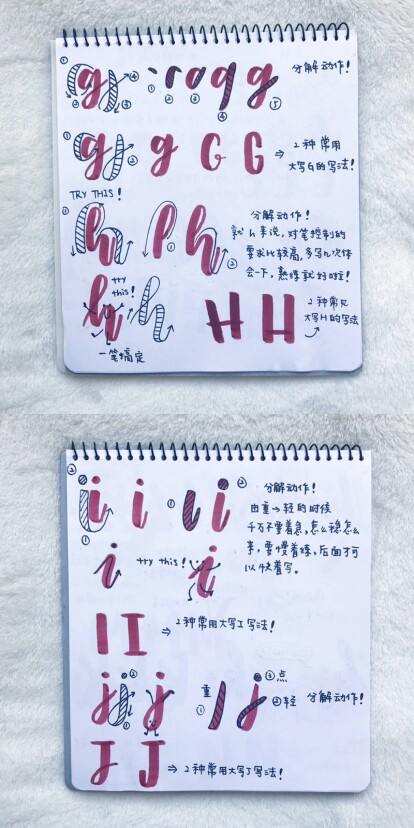 g g 分解动作!
g g G G ⇒ 2种常用
大写G的写法!
TRY THIS!
h l h 分解动作!
就h来说,对笔控制的
要求比较高,多写几次体
会一下,熟练就好啦!
try
this!
h h
一笔搞定
H H 2种常见
大写H的写法
i i i 分解动作!
由重→轻的时候
千万不要着急,怎么稳怎么
来,要慢着练,后面才可
以快着写。
i try this! i
I I ⇒ 2种常用大写I写法!
j j 重 ①
③点
②轻 分解动作!
J J ⇒ 2种常用大写J写法!